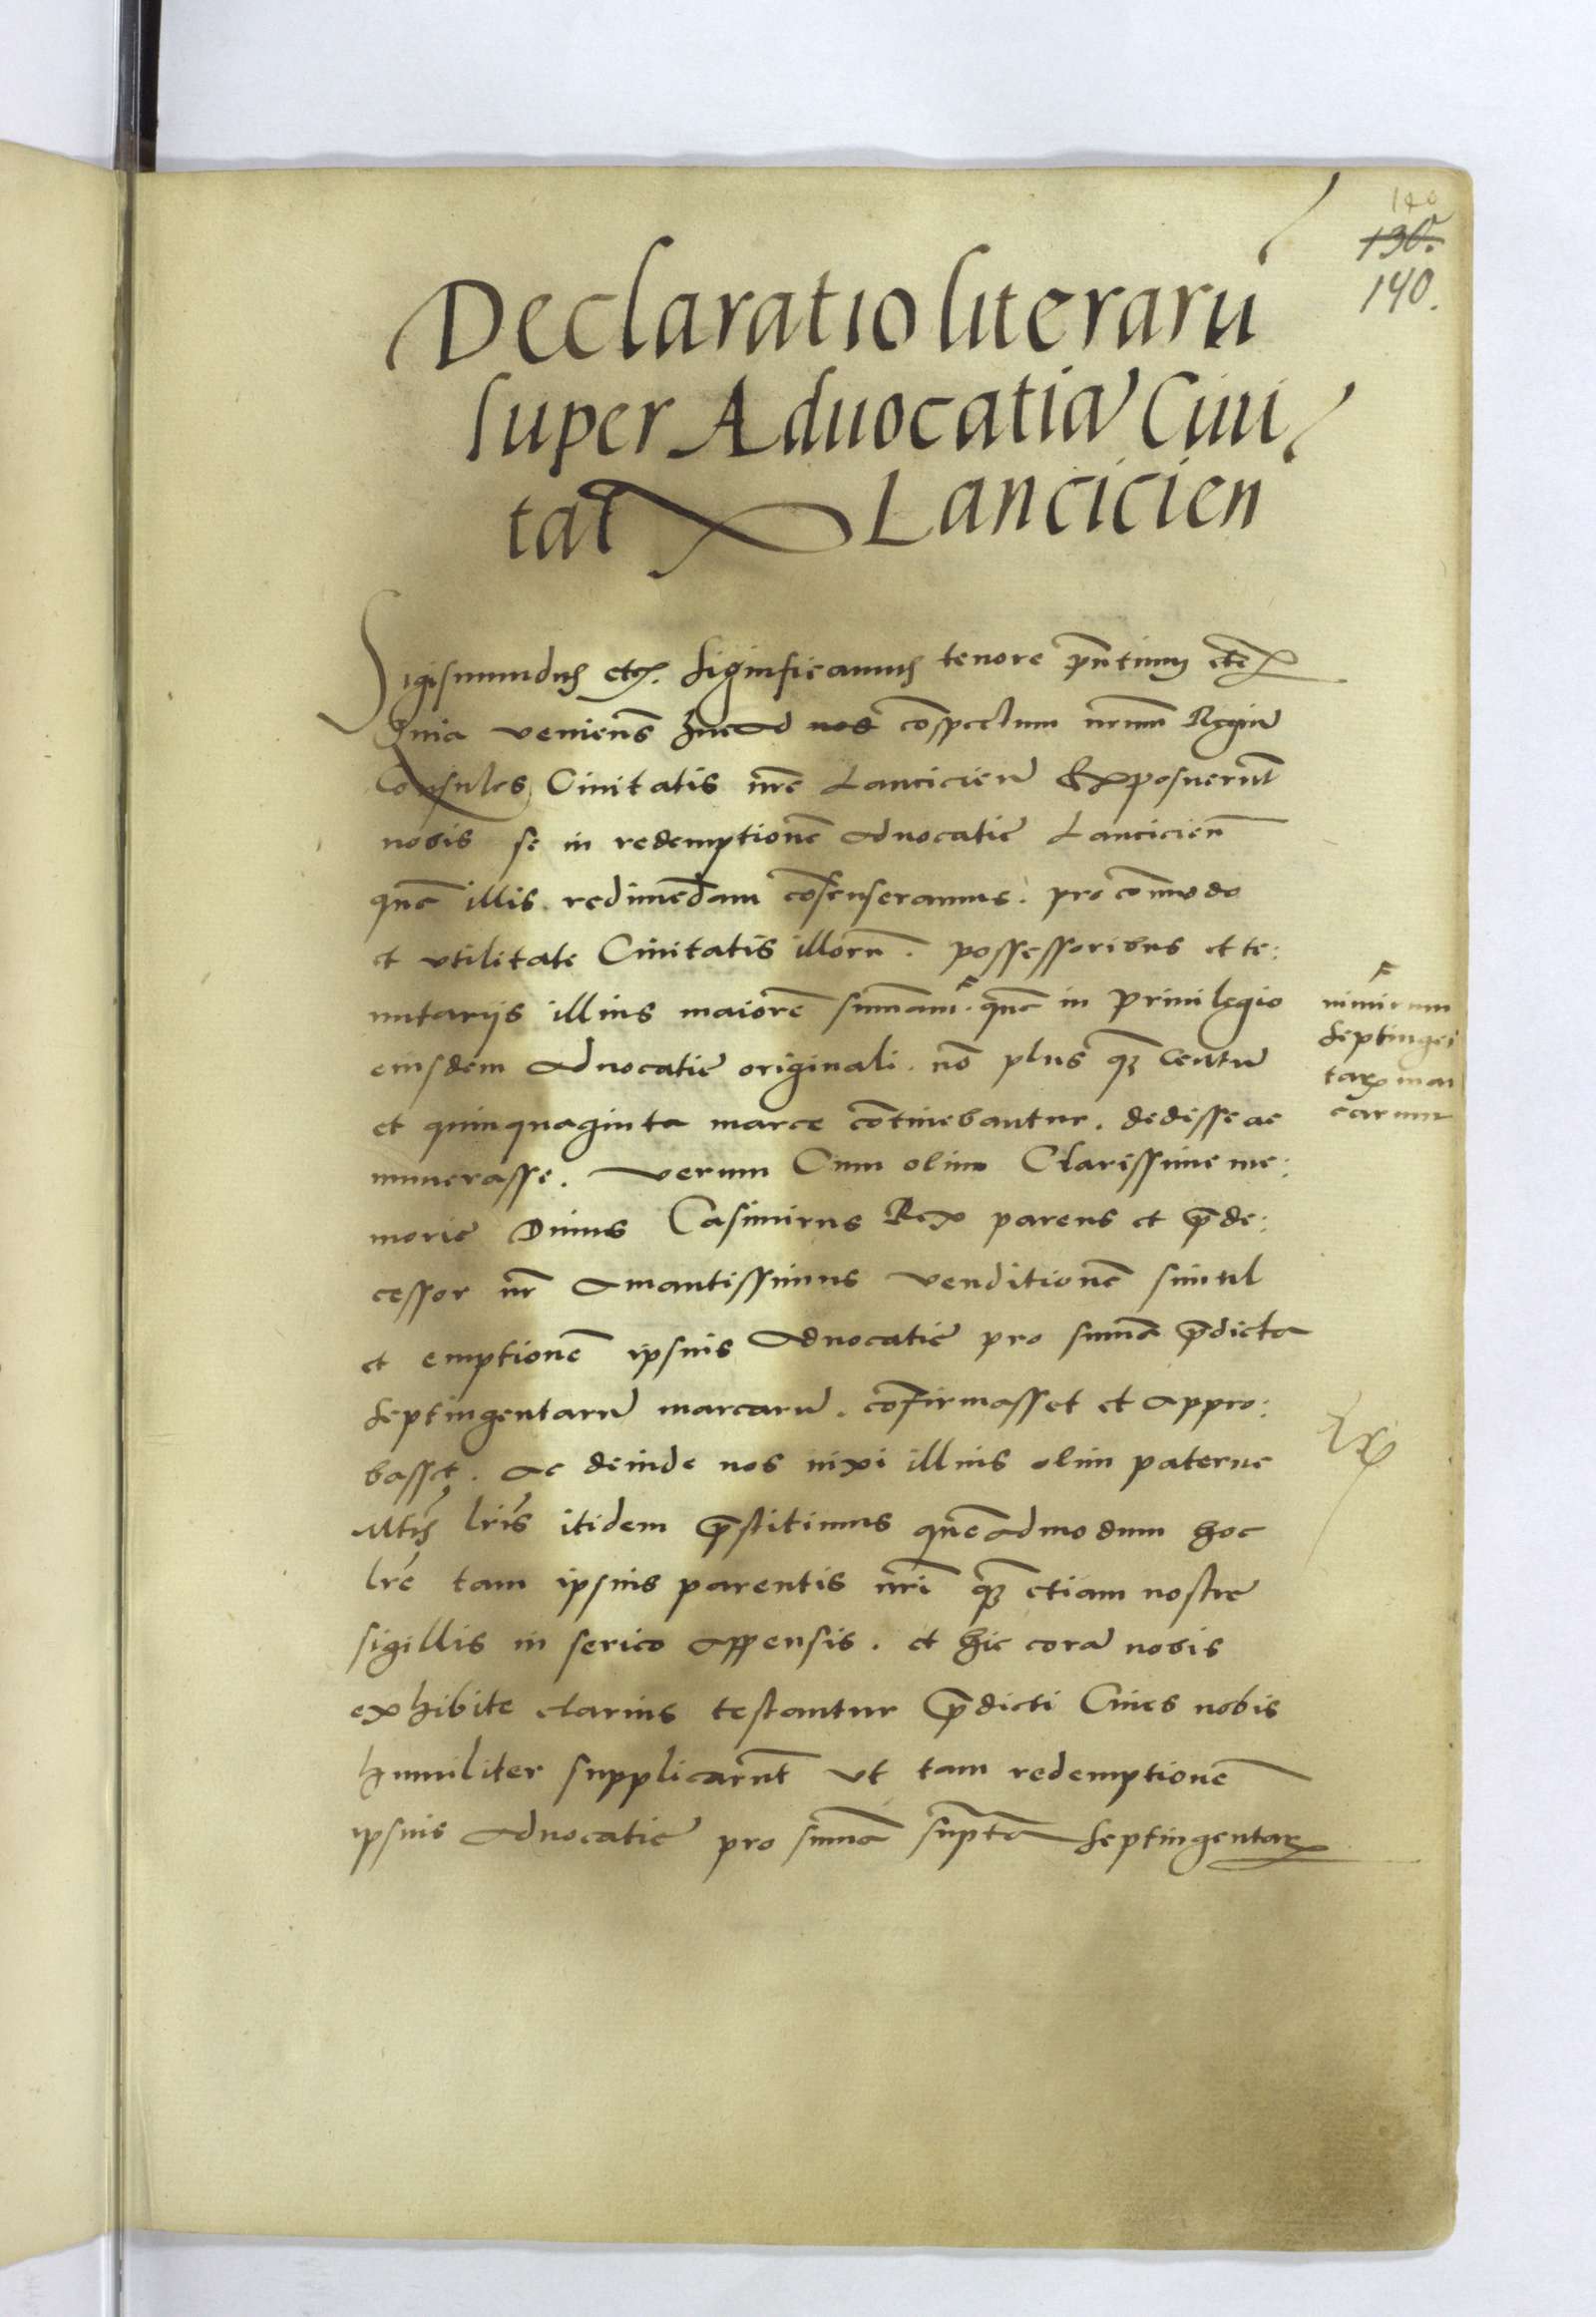 140
130.
140.
Declaratio literarū
super Aduocatia Ciui
tat Lancicien
Sigismundus etc. Significamus tenore pñtium etc
Quia venientes huc ad nos cõspectum nrmm Regiũ
Consules Ciuitatis nr̃e Lancicieñ Exposuerũt
nobis se in redemptionẽ aduocatie Lancicieñ
quã illis redimẽdam cõsenseramus. pro cõmodo
et vtilitate Ciuitatis illorũ. possessoribus et te:
nutarijs illius maiorẽ sum̃am. quã in priuilegio
eiusdem aduocatie originali. nõ plus qz̃ Centũ
et quinquaginta marce cõtinebantur. dedisse ac
numerasse. verum Cum olim Clarissime me:
morie Diuus Casimirus Rex parens et p̃de:
cessor nr̃ amantissimus venditionẽ simul
et emptionẽ ipsius aduocatie pro sum̃a p̃dicta
septingentarũ marcarũ. cõfirmasset et appro:
basset. ac deinde nos nixi illius olim paterne
Mtis lr̃is itidem p̃stitimus quẽadmodum hoc
lr̃e tam ipsius parentis nr̃i qz̃ etiam nostre
sigillis in serico appensis. et hic corã nobis
exhibite clarius testantur p̃dicti Ciues nobis
humiliter supplicarũt vt tam redemptionẽ
ipsius aduocatie pro sum̃a sup̃ta septingentarꝝ
nimirum
septingen
tarꝝ mar
carum